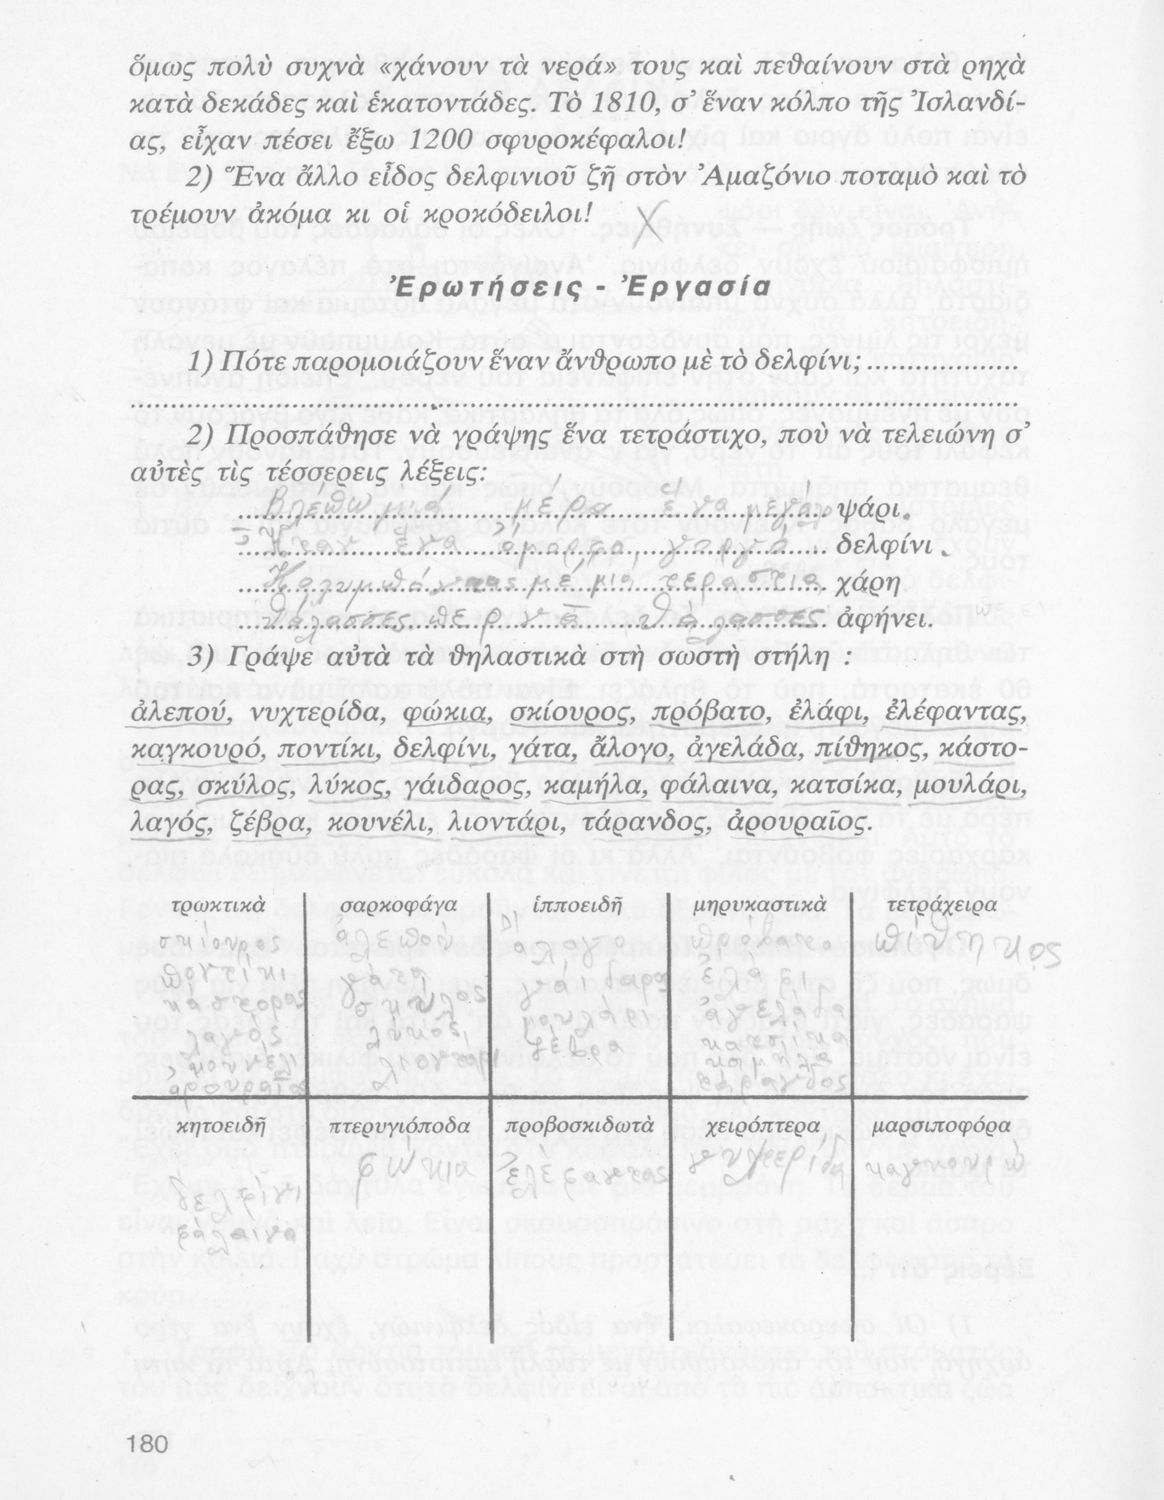 ὅμως πολὺ συχνὰ «χάνουν τὰ νερά» τους καὶ πεθαίνουν στὰ ρηχὰ
κατὰ δεκάδες καὶ ἑκατοντάδες. Τὸ 1810, σ' ἕναν κόλπο τῆς Ἰσλανδί-
ας, εἶχαν πέσει ἔξω 1200 σφυροκέφαλοι!
2) Ἕνα ἄλλο εἶδος δελφινιοῦ ζῆ στὸν Ἀμαζόνιο ποταμὸ καὶ τὸ
τρέμουν ἀκόμα κι οἱ κροκόδειλοι!
Ἐρωτήσεις - Ἐργασία
1) Πότε παρομοιάζουν ἕναν ἄνθρωπο μὲ τὸ δελφίνι; ....................
2) Προσπάθησε νὰ γράψης ἕνα τετράστιχο, ποὺ νὰ τελειώνη σ'
αὐτὲς τὶς τέσσερεις λέξεις:
Βλέπω μιά μέρα ἕνα μεγάλο ψάρι.
Ἦταν ἕνα ὄμορφο, γαργά δελφίνι.
Κολυμπάει με μιά τεράστια χάρη
θάλασσες περνᾶ θάλασσες ἀφήνει.
3) Γράψε αὐτὰ τὰ θηλαστικὰ στὴ σωστὴ στήλη :
ἀλεπού, νυχτερίδα, φώκια, σκίουρος, πρόβατο, ἐλάφι, ἐλέφαντας,
καγκουρό, ποντίκι, δελφίνι, γάτα, ἄλογο, ἀγελάδα, πίθηκος, κάστο-
ρας, σκύλος, λύκος, γάιδαρος, καμήλα, φάλαινα, κατσίκα, μουλάρι,
λαγός, ζέβρα, κουνέλι, λιοντάρι, τάρανδος, ἀρουραῖος.
τρωκτικὰ σαρκοφάγα ἱπποειδῆ μηρυκαστικὰ τετράχειρα
σκίουρος ἀλεπού ἄλογο πρόβατο πίθηκος
ποντίκι γάτα γάιδαρος ἐλάφι
κάστορας σκύλος μουλάρι ἀγελάδα
λαγός λύκος ζέβρα κατσίκα
κουνέλι λιοντάρι καμήλα
ἀρουραῖο τάρανδος
κητοειδῆ πτερυγιόποδα προβοσκιδωτὰ χειρόπτερα μαρσιποφόρα
φώκια ἐλέφαντας νυχτερίδα καγκουρώ
δελφίνι
φάλαινα
180